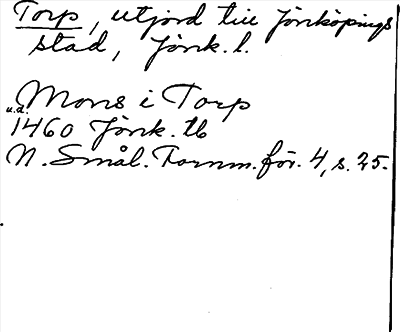 Torp, utjord till Jönköpings
stad, Jönk. l.
u.d. Mons i Torp
1460 Jönk. tb
N. Smål. Fornm. för. 4, s. 25.